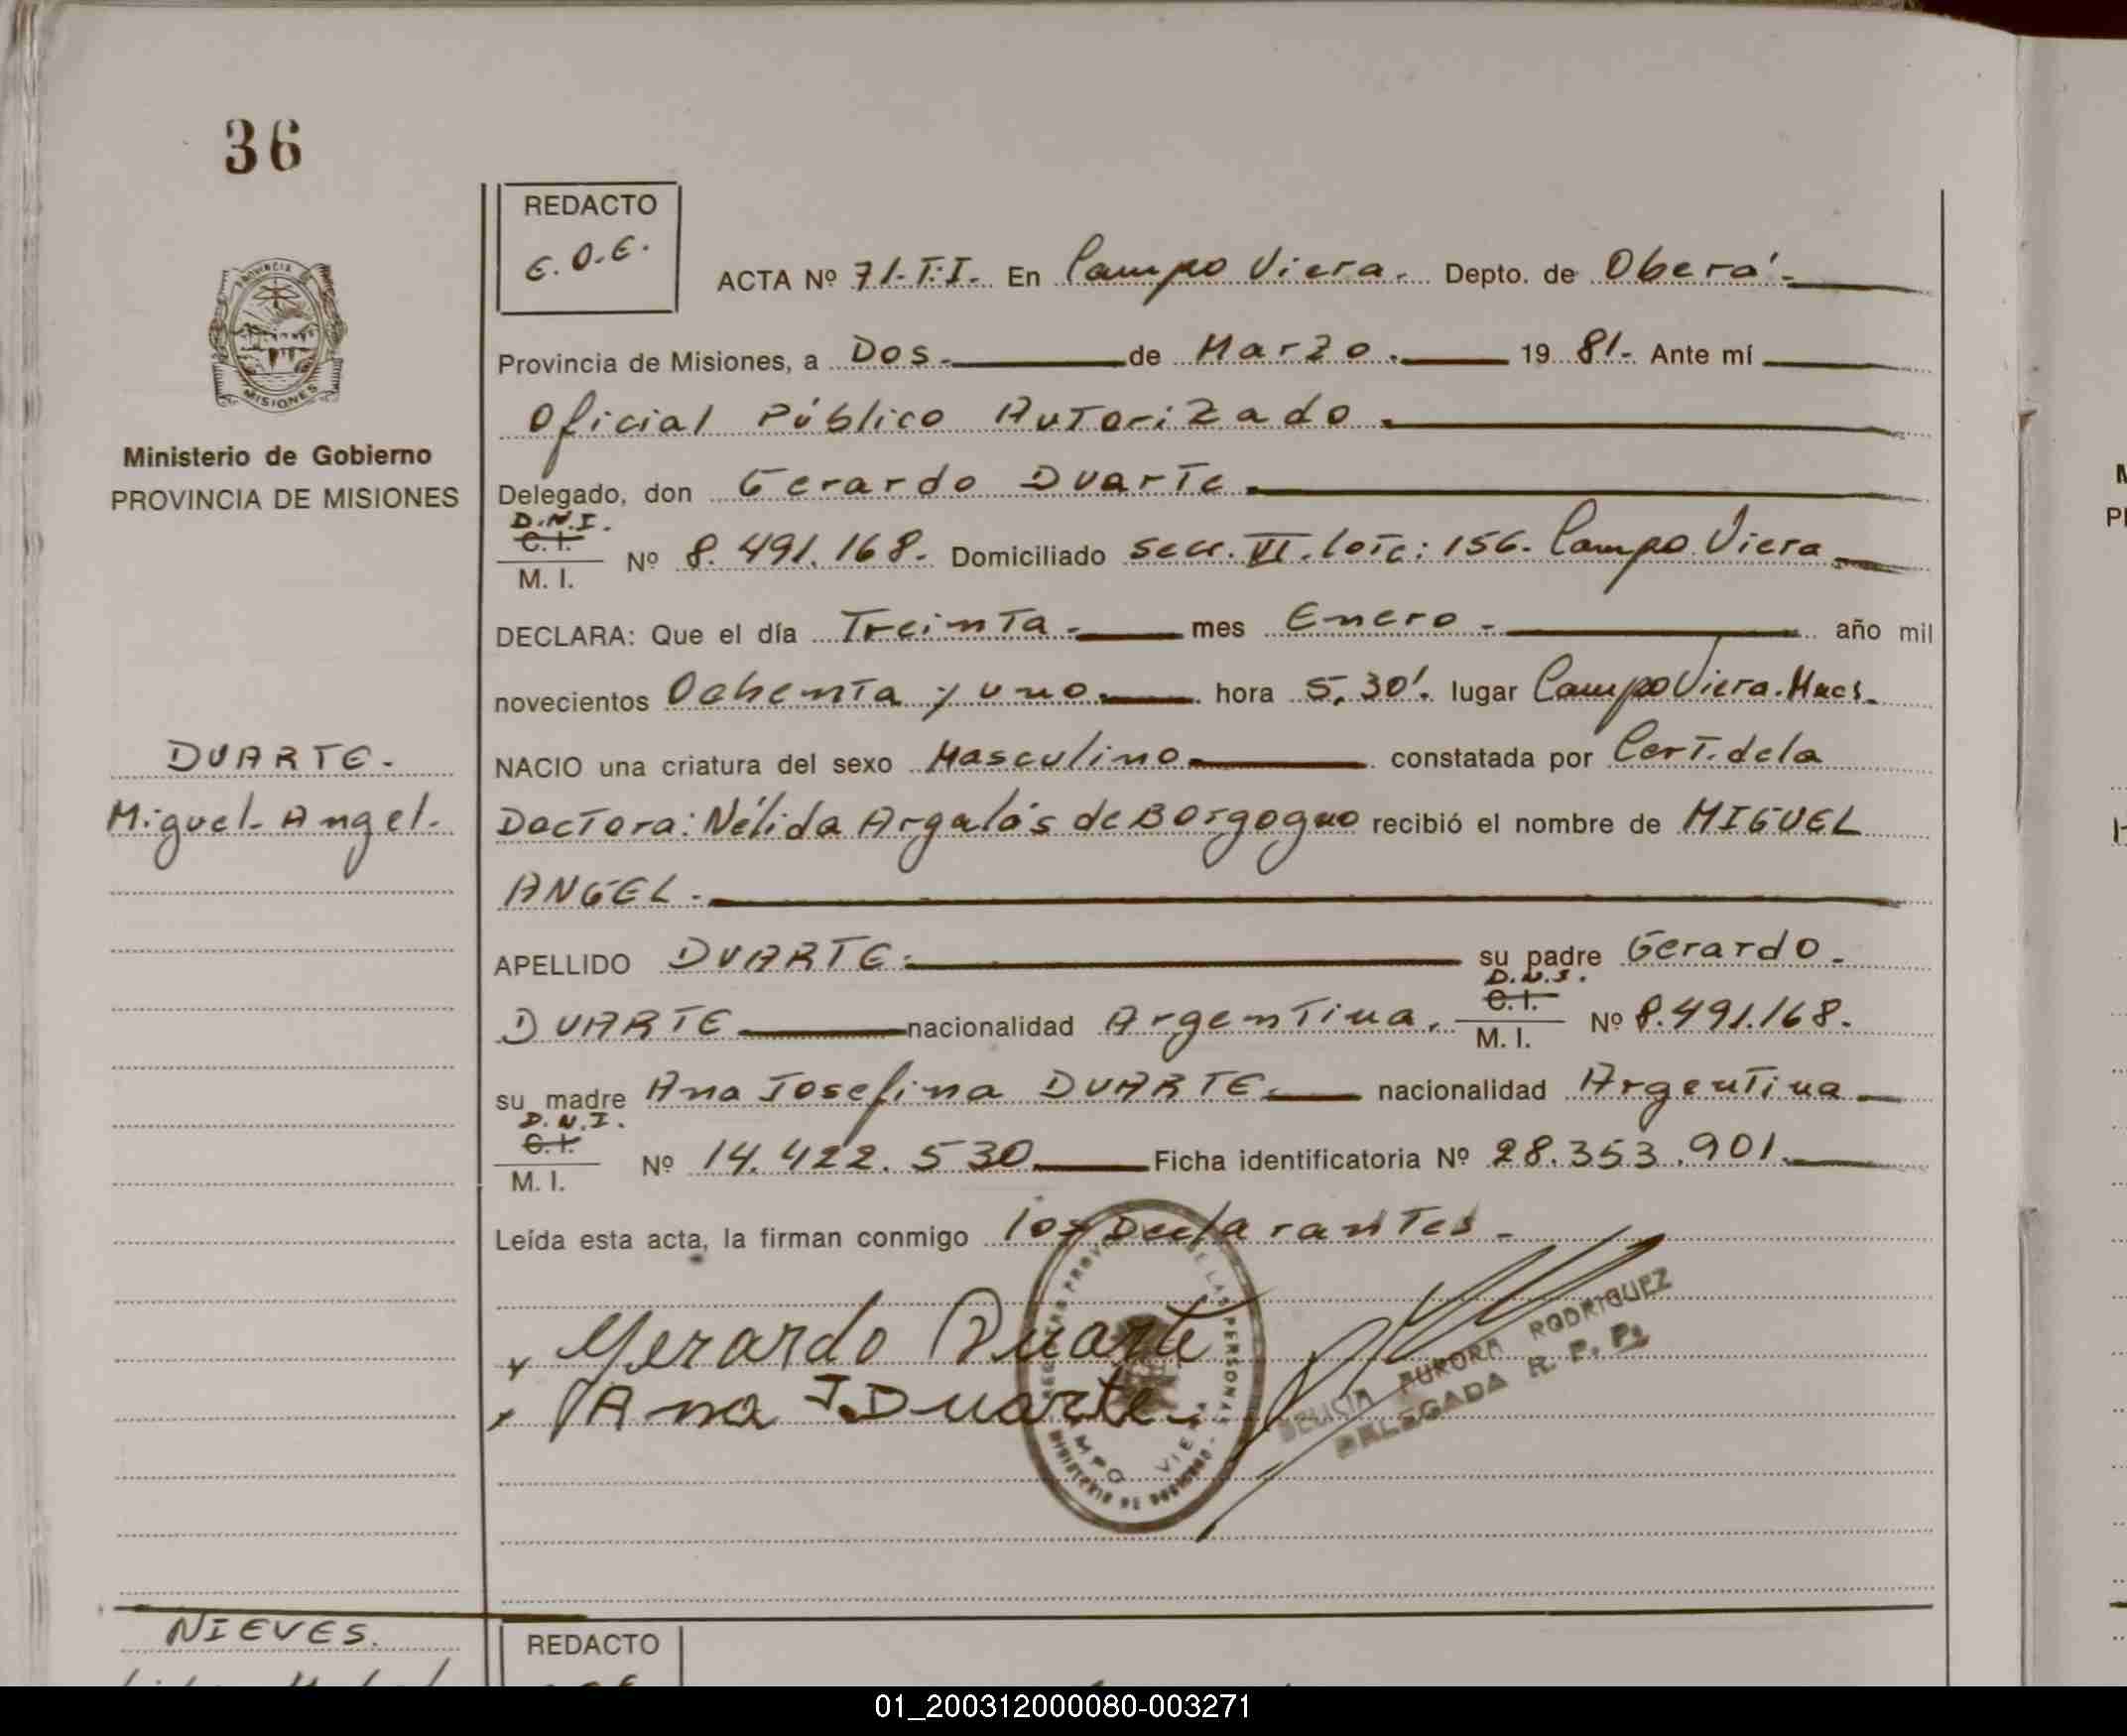 36
REDACTO
E.O.E.
ACTA Nº 71-T:I. En Campo Viera. Depto. de Oberá.
PROVINCIA DE
MISIONES
Provincia de Misiones, a Dos. de Marzo. 19 81. Ante mí
Oficial Público Autorizado.
Ministerio de Gobierno
PROVINCIA DE MISIONES
Delegado, don Gerardo Duarte
D.N.I.
C.I.
M. I.
Nº 8.491.168. Domiciliado Secc. VI. lote: 156. Campo Viera
DECLARA: Que el día Treinta. mes Enero. año mil
novecientos Ochenta y uno. hora 5,30'. lugar Campo Viera. Mnes.
NACIO una criatura del sexo Masculino constatada por Cert. de la
DUARTE.
Miguel Angel.
Doctora: Nélida Argalás de Borgogno recibió el nombre de MIGUEL
ANGEL.
APELLIDO DUARTE. su padre Gerardo.
D.N.I.
C.I.
M. I.
DUARTE nacionalidad Argentina. Nº 8.491.168.
su madre Ana Josefina DUARTE. nacionalidad Argentina
D.N.I.
C.I.
M. I.
Nº 14.422.530 Ficha identificatoria Nº 28.353.901.
Leída esta acta, la firman conmigo los Declarantes.
Gerardo Duarte
Ana J. Duarte.
AURORA RODRIGUEZ
DELEGADA R. P. P.
NIEVES.
REDACTO
01_200312000080-003271